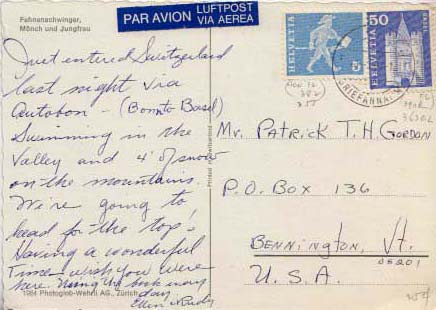 Fahnenschwinger,
Mönch und Jungfrau
PAR AVION LUFTPOST
VIA AEREA
HELVETIA 5
HELVETIA 50
BASEL
BRIEFANNAHME
Just entered Switzerland
last night via
Autobon - (Bonn to Basel)
Swimming in the
Valley and 4' of snow
on the mountains.
We're going to
head for the top!
Having a wonderful
Time wish you were
here. Using the book every
day
Ellen & Rudy
1984 Photoglob-Wehrli AG., Zürich
Printed in Switzerland
Mr. PATRICK T.H. GORDON
P.O. BOX 136
BENNINGTON, Vt.
05201
U.S.A.